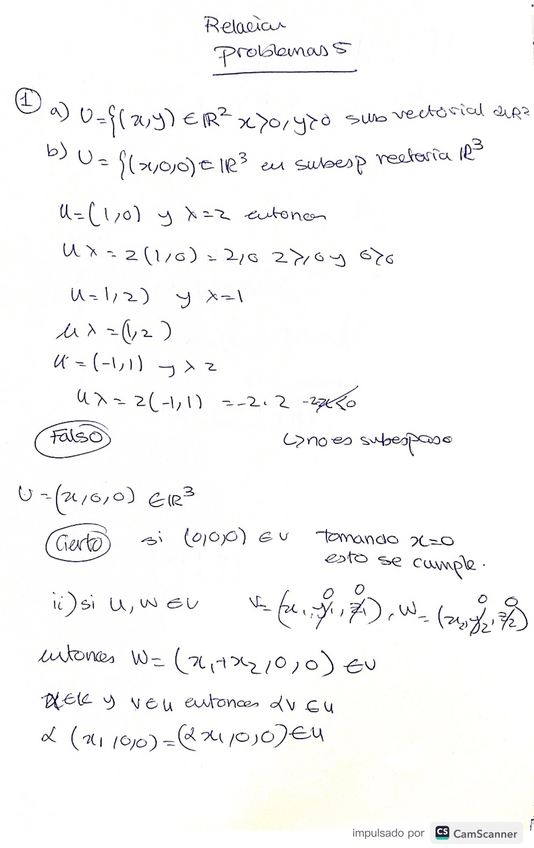 Relación
Problemas 5
① a) U={(x,y) ∈ ℝ² x≥0, y≥0 subvectorial de ℝ²
b) U = {(x,0,0) ∈ ℝ³ es subesp vectoria ℝ³
u=(1,0) y λ=2 entonces
uλ = 2(1,0) = 2,0 2≥0 y 0≥0
u=1,2) y λ=1
uλ = (1,2)
u = (-1,1) y λ 2
uλ = 2(-1,1) = -2, 2
Falso ↳ no es subespaso
U = (x,0,0) ∈ ℝ³
Cierto si (0,0,0) ∈ U tomando x=0
esto se cumple.
ii) si u, w ∈ U v= (x₁, y₁, z₁), w = (x₂, y₂, z₂)
0 0 0 0
entonces w = (x₁+x₂, 0, 0) ∈ U
∈ K y v ∈ u entonces αv ∈ u
α (x₁, 0,0) = (αx₁, 0,0) ∈ u
impulsado por CS CamScanner